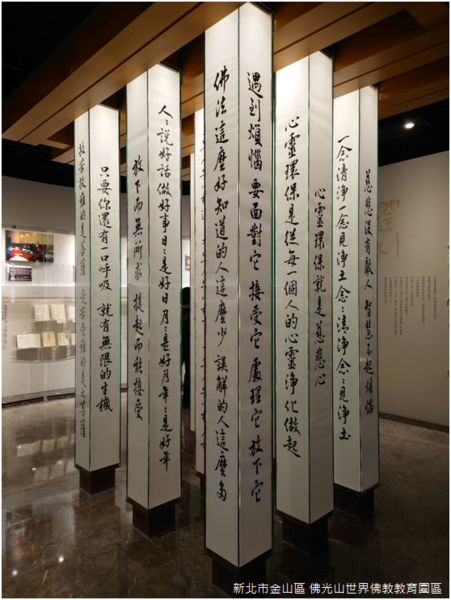 慈悲沒有敵人 智慧不起煩惱
一念清淨一念見淨土念〻清淨念〻見淨土
心靈環保就是慈悲心
心靈環保是從每一個人的心靈淨化做起
遇到煩惱要面對它接受它處理它放下它
佛法這麼好知道的人這麼少誤解的人這麼多
人〻說好話做好事日〻是好日月〻是好月年〻是好年
放下而無所求提起而能接受
只要你還有一口呼吸 就有無限的生機
救苦救難的是菩薩 受苦受難的是大菩薩
新北市金山區 佛光山世界佛教教育園區